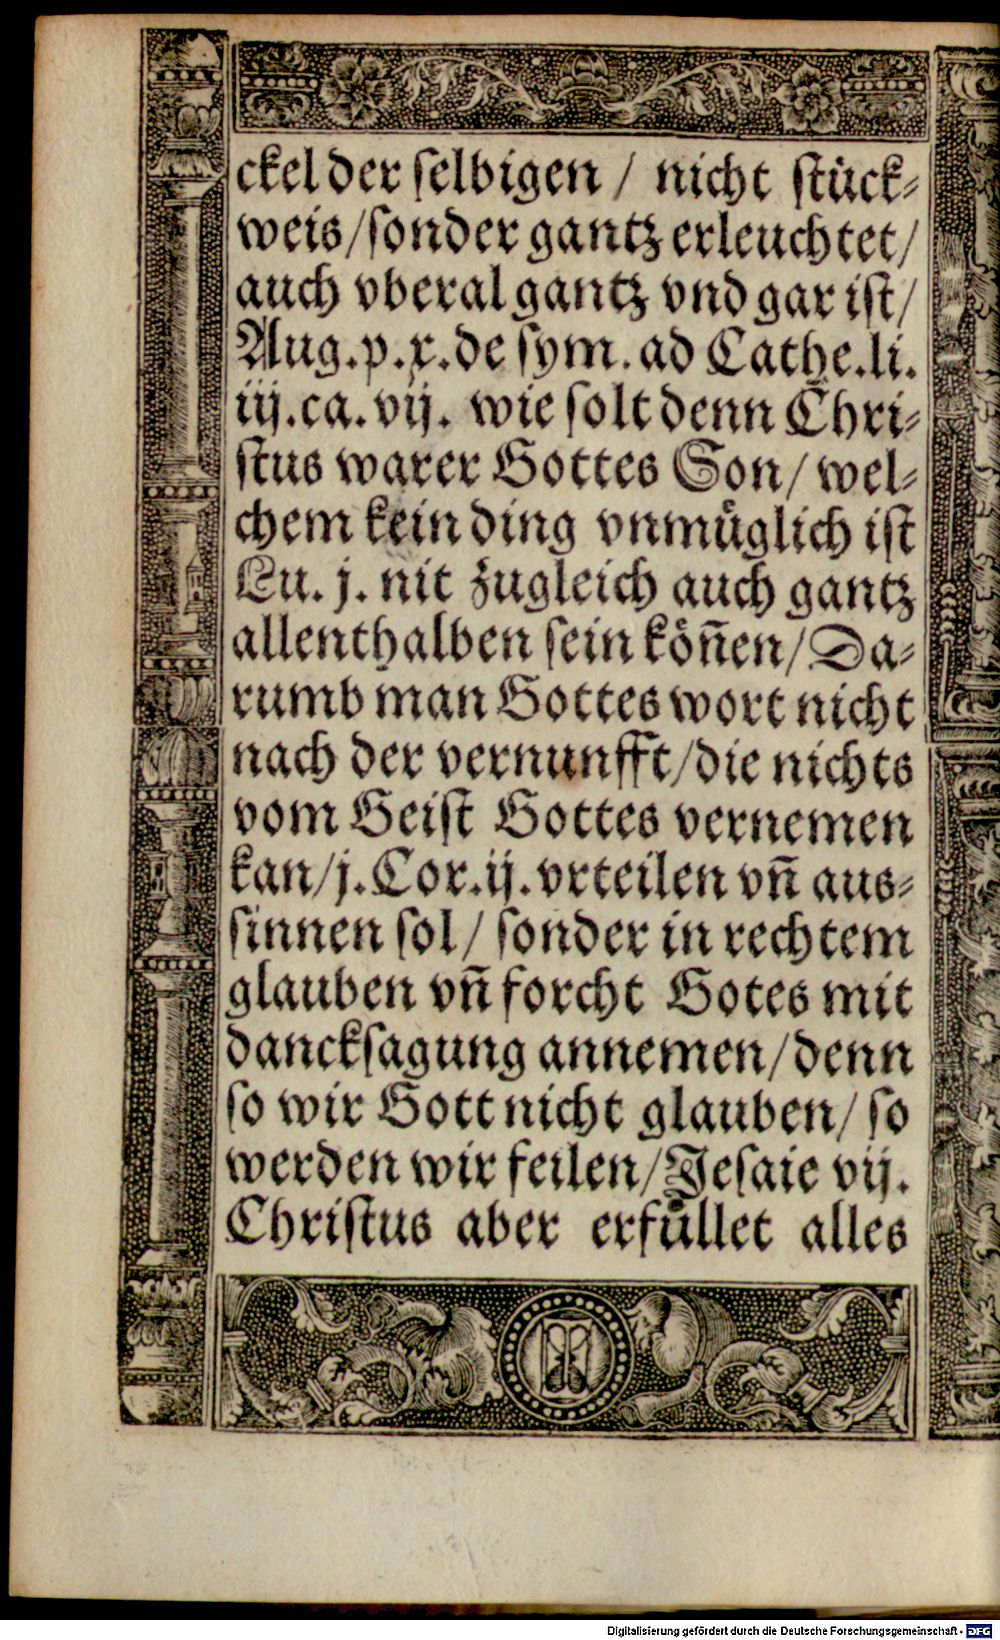 ckel der ſelbigen / nicht ſtück⸗
weis/ſonder gantz erleuchtet/
auch vberal gantz vnd gar iſt/
Aug.p.x.de ſym.ad Cathe.li.
iij.ca.vij. wie ſolt denn Chri⸗
ſtus warer Gottes Son/ wel⸗
chem kein ding vnmüglich iſt
Lu. j. nit zugleich auch gantz
allenthalben ſein köñen/ Da⸗
rumb man Gottes wort nicht
nach der vernunfft/die nichts
vom Geiſt Gottes vernemen
kan/j.Cor.ij.vrteilen vñ aus⸗
ſinnen ſol/ ſonder in rechtem
glauben vñ forcht Gotes mit
danckſagung annemen/denn
ſo wir Gott nicht glauben/ ſo
werden wir feilen/Jeſaie vij.
Chriſtus aber erfüllet alles
Digitalisierung gefördert durch die Deutsche Forschungsgemeinschaft - DFG